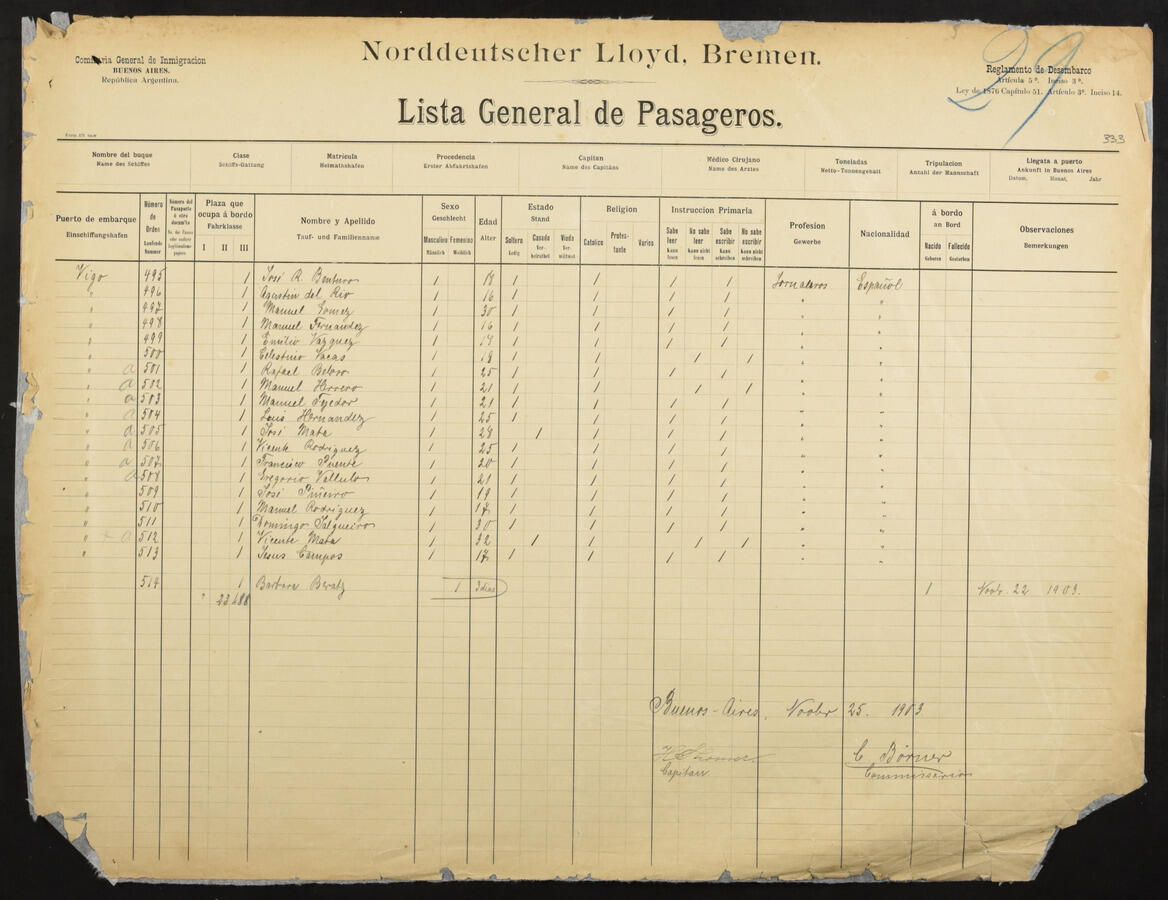 Norddeutscher Lloyd, Bremen.
Comisaria General de Inmigracion
BUENOS AIRES.
República Argentina.
29
Reglamento de Desembarco
Artícula 5º. Inciso 3º.
Ley de 1876 Capítulo 51. Artículo 3º. Inciso 14.
Lista General de Pasageros.
333
Nombre del buque Clase Matricula Procedencia Capitan Médico Cirujano Toneladas Tripulacion Llegata a puerto
Name des Schiffes Schiffs-Gattung Heimathshafen Erster Abfahrtshafen Name des Capitäns Name des Arztes Netto-Tonnengehalt Anzahl der Mannschaft Ankunft in Buenos Aires
Datum, Monat, Jahr
Puerto de embarque Número de Orden Plaza que ocupa á bordo Nombre y Apellido Sexo Edad Estado Religion Instruccion Primaria Profesion Nacionalidad á bordo Observaciones
Einschiffungshafen Laufende Nummer Fahrklasse Tauf- und Familienname Geschlecht Alter Stand Gewerbe an Bord Bemerkungen
I II III Masculino Femenino Soltero Casado Viudo Catolico Protestante Varios Sabe leer No sabe leer Sabe escribir No sabe escribir Nacido Fallecido
Männlich Weiblich Ledig Verheirathet Verwittwet Kann lesen Kann nicht lesen Kann schreiben Kann nicht schreiben Geboren Gestorben
Vigo 495 1 José R. 1 18 1 1 1 1 Jornaleros Español
" 496 1 Agustin del Rio 1 16 1 1 1 1 " "
" 497 1 Manuel Gomez 1 30 1 1 1 1 " "
" 498 1 Manuel Fernandez 1 16 1 1 1 1 " "
" 499 1 Emilio Vazquez 1 19 1 1 1 1 " "
" 500 1 Celestino Vacas 1 18 1 1 1 1 " "
" a 501 1 Rafael 1 25 1 1 1 1 " "
" a 502 1 Manuel Herrero 1 21 1 1 1 1 " "
" a 503 1 Manuel Tejedor 1 21 1 1 1 1 " "
" a 504 1 Luis Hernandez 1 25 1 1 1 1 " "
" a 505 1 José Mata 1 28 1 1 1 1 " "
" a 506 1 Vicente Rodriguez 1 25 1 1 1 1 " "
" a 507 1 Francisco Puente 1 20 1 1 1 1 " "
" a 508 1 Gregorio 1 21 1 1 1 1 " "
" 509 1 José Piñeiro 1 19 1 1 1 1 " "
" 510 1 Manuel Rodriguez 1 17 1 1 1 1 " "
" 511 1 Domingo Salgueiro 1 30 1 1 1 1 " "
" a 512 1 Vicente Mata 1 32 1 1 1 1 " "
" 513 1 Jesus Campos 1 17 1 1 1 1 " "
514 1 Barbara 1 3 dias 1 Novbr. 22 1903.
" 23.488
Buenos-Aires, Novbr 25. 1903
C. Börner
Capitan Commissario